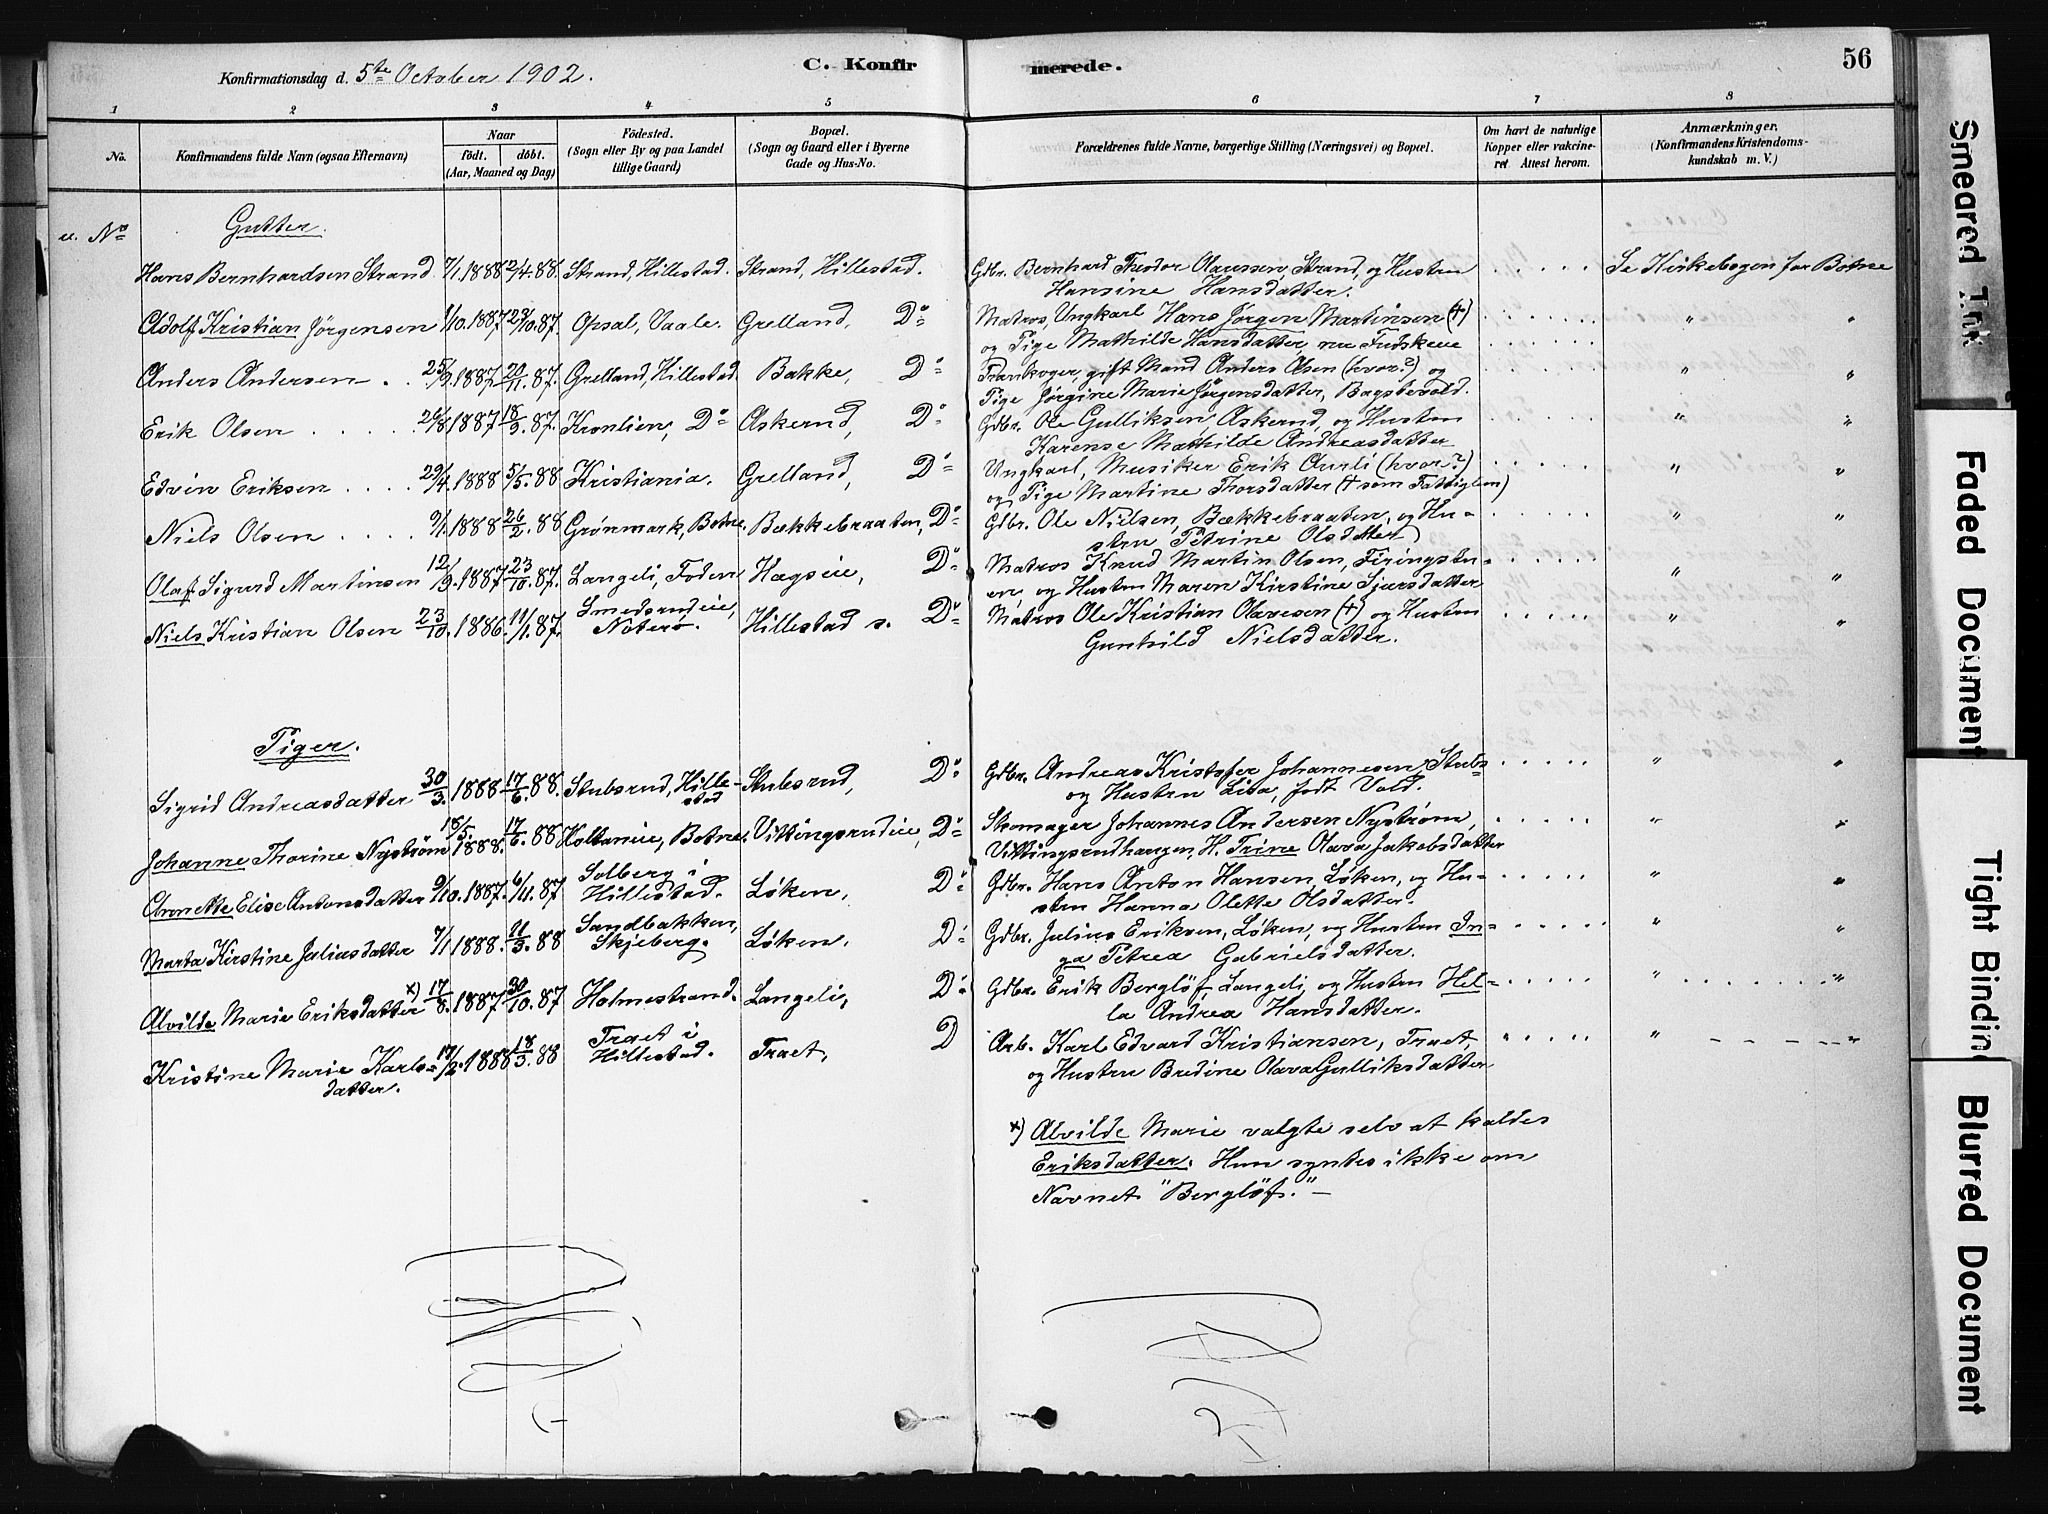 56
C. Konfir merede.
Konfirmationsdag d. 5te October 1902.
1 2 3 4 5 6 7 8
No.
Konfirmandens fulde Navn (ogsaa Efternavn)
Naar
født. døbt.
(Aar, Maaned og Dag)
Fødested.
(Sogn eller By og paa Landet
tillige Gaard)
Bopæl.
(Sogn og Gaard eller i Byerne
Gade og Hus-No.
Forældrenes fulde Navne, borgerlige Stilling (Næringsvei) og Bopæl.
Om havt de naturlige
Kopper eller vakcine-
ret. Attest herom.
Anmærkninger.
(Konfirmandens Kristendoms-
kundskab m. V.)
No Gutter.
Hans Bernhardsen Strand 7/1 1888 2/4. 88. Strand, Hillestad. Strand, Hillestad. Gdbr. Bernhard Theodor Olaussen, Strand, og Hustru Se Kirkebogen for Botne
Hansine Hansdatter.
Adolf Kristian Jörgensen 1/10. 1887 23/10. 87. Opsal, Vaale. Grelland, Do Matros, Ungkarl Hans Jørgen Martinsen (+) " "
og Pige Mathilde Hansdatter, nu Fredskene
Anders Andersen 25/9. 1887 20/11. 87. Grelland, Hillestad. Bakke, Do Trankoger, gift Mand Anders Olsen (hvor?) og " "
Pige Jørgine Marie Jörgensdatter, Bagstevold.
Erik Olsen 26/8 1887 18/9. 87. Kronlien, Do Askerud, Do Gdbr. Ole Gulliksen, Askerud, og Hustru " "
Karense Mathilde Andreasdatter
Edvin Eriksen 29/4. 1888 5/5. 88 Kristiania. Grelland, Do Ungkarl, Musiker Erik Aurli (hvor?) " "
og Pige Martine Thorsdatter (+ som Fattiglem)
Niels Olsen 9/1. 1888 26/2. 88 Grønmark, Botne. Bækkebraaten, Do Gdbr. Ole Nielsen, Bækkebraaten, og Hu- " "
stru Petrine Olsdatter
Olaf Sigurd Martinsen 12/9. 1887 23/10. 87. Langeli, Foden Hagseie, Do Matros Knud Martin Olsen, " "
og Hustru Maren Kirstine Sjursdatter
Niels Kristian Olsen 23/10. 1886. 11/1. 87. Smedsrudeie, Hillestad s. Do Matros Ole Kristian Olavesen (+) og Hustru " "
Nøterø. Gunhild Nielsdatter.
Piger.
Sigrid Andreasdatter 30/3. 1888 17/6. 88. Stubsrud, Hille- Stubsrud, Do Gdbr. Andreas Kristofer Johannesen, Stubs- " "
stad og Hustru Lisa, født Vold.
Johanne Thorine Nyström 18/5. 1888. 17/6. 88 Holtaneie, Botne. Vittingsrudeie, Do Skomager Johannes Andersen Nystrøm, " "
Vittingsrudhaugen, H. Trine Olava Jakobsdatter
Anette Elise Antonsdatter 9/10. 1887. 6/11. 87 Solberg i Løken, Do Gdbr. Hans Anton Hansen, Løken, og Hu- " "
Hillestad. stru Hanna Olette Olsdatter.
Marta Kirstine Juliusdatter 7/1 1888. 11/3. 88 Sandbakken, Løken. Do Gdbr. Julius Eriksen, Løken, og Hustru In- " "
Skjeberg. ga Petrea Gabrielsdatter.
Alvilde Marie Eriksdatter x) 17/8. 1887 30/10. 87 Holmestrand. Langeli, Do Gdbr. Erik Berglöf, Langeli, og Hustru Hel- " "
la Andrea Hansdatter.
Kristine Marie Karls- 17/2. 1888 18/3. 88 Traet i Traet, D Arb. Karl Edvard Kristiansen, Traet, " "
datter. Hillestad. og Hustru Bredine Olava Gulliksdatter
x) Alvilde Marie valgte selv at kaldes
Eriksdatter. Hun syntes ikke om
Navnet "Berglöf." -
Smeared Ink
Faded Document
Tight Bindin
Blurred Document